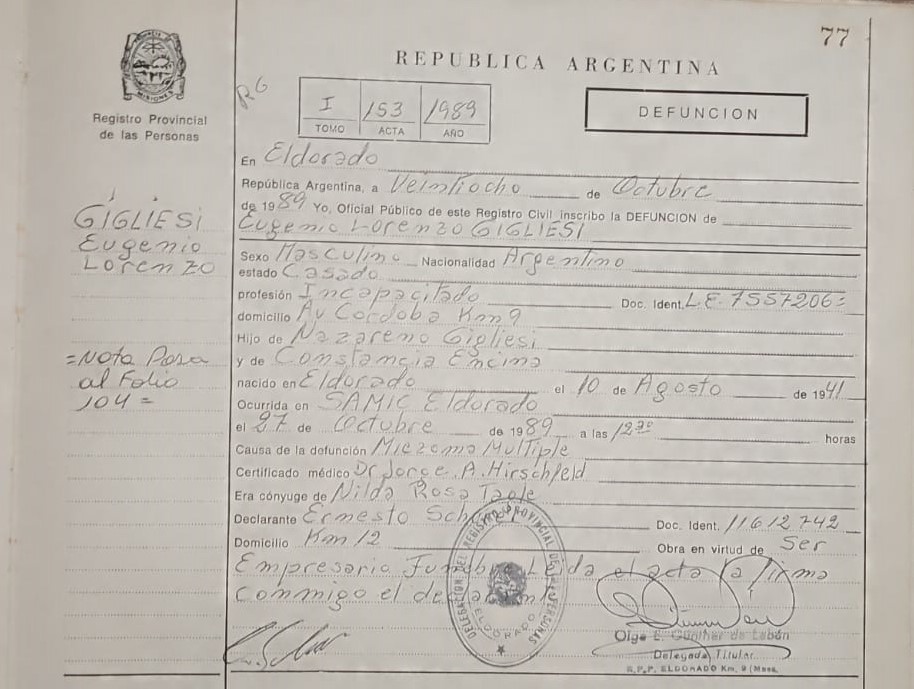 77
MISIONES
Registro Provincial
de las Personas
REPUBLICA ARGENTINA
RG
I 153 1989
TOMO ACTA AÑO
DEFUNCION
En Eldorado
República Argentina, a Veintiocho de Octubre
de 1989 Yo, Oficial Público de este Registro Civil inscribo la DEFUNCION de
Eugenio Lorenzo GIGLIESI
GIGLIESI
Eugenio
Lorenzo
Sexo Masculino Nacionalidad Argentino
estado Casado
profesión Incapacitado Doc. Ident. L.E. 7557206=
domicilio Av Cordoba Km 9
Hijo de Nazareno Gigliesi
y de Constancia Encina
=Nota Pasa
al Folio
104=
nacido en Eldorado el 10 de Agosto de 1941
Ocurrida en SAMIC Eldorado
el 27 de Octubre de 1989 a las 12 horas
Causa de la defunción Miezoma Multiple
Certificado médico Dr Jorge A. Hirschfeld
Era cónyuge de Nilda Rosa
Declarante Ernesto Doc. Ident. 11612742
Domicilio Km 12 Obra en virtud de Ser
Empresario Leida el acta la firma
conmigo el
DELEGACION DEL REGISTRO PROVINCIAL DE LAS PERSONAS
ELDORADO
Olga E. Günther de Labán
Delegada Titular
R.P.P. ELDORADO Km. 9 (Mnes.